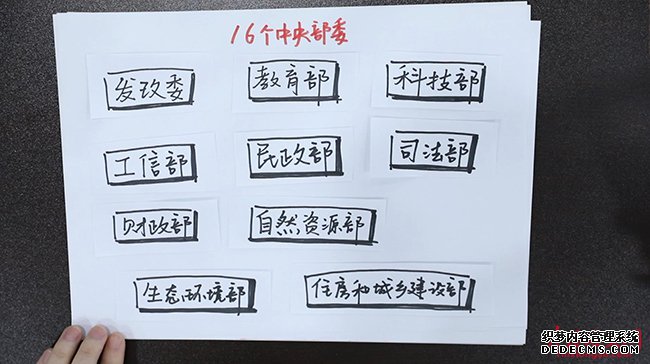 16个中央部委
发改委 教育部 科技部
工信部 民政部 司法部
财政部 自然资源部
生态环境部 住房和城乡建设部
织梦内容管理系统
DEDECMS.COM